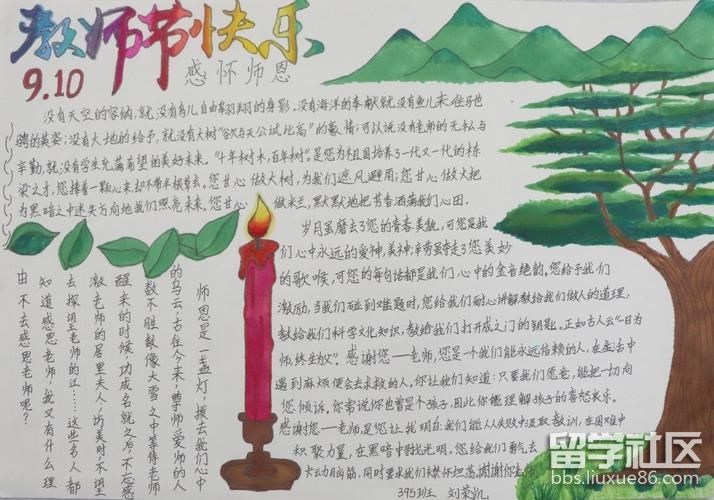 教师节快乐
9.10
感怀师恩
没有天空的容纳,就没有鸟儿自由翱翔的身影。没有海洋的奉献就没有鱼儿来往驰
骋的英姿;没有大地的给予,就没有大树“欲与天公试比高”的豪情;可以说没有老师的无私与
辛勤,就没有学生充满希望的美好未来。“十年树木,百年树人”。是您为祖国培养了一代又一代的栋
梁之才,您捧着一颗心来却不带半根草去。您甘心做大树,为我们遮风避雨;您甘心做火把
为黑暗之中迷失方向地我们照亮未来。您甘心做米兰,默默地把芳香洒满我们心田。
岁月虽磨去了您的青春美貌,可您是我
们心中永远的爱神,美神;辛劳虽夺走了您美妙
的歌喉,可您的每句话都是我们心中的金音绝韵。您给予我们
激励,当我们碰到难题时,您给我们耐心讲解教给我们做人的道理,
教给我们科学文化知识,教给我们打开成才之门的钥匙。正如古人云“一日为
师,终生为父”。感谢您——老师,您是一个我们能永远信赖的人,在生活中
遇到麻烦便会去求救的人。你让我们知道:只要我们愿意,能把一切向
您倾诉。你常说你也曾是个孩子,因此你能理解孩子的喜怒哀乐。
感谢您——老师,是您让我明白:我们能从失败中汲取教训,在困难中
积聚力量,在黑暗中寻找光明,您给我们勇气去
师恩是一盏灯,拨去我们心中
的乌云;古往今来,尊师爱师的人
数不胜数像大雪之中等待老师
醒来的时候;功成名就之后,不忘感
激老师的居里夫人;访美时,不谓
去探望老师的江……这些名人都
知道感恩老师,我又有什么理
由不去感恩老师呢?
395班 刘荣凯
留学社区
bbs.liuxue86.com